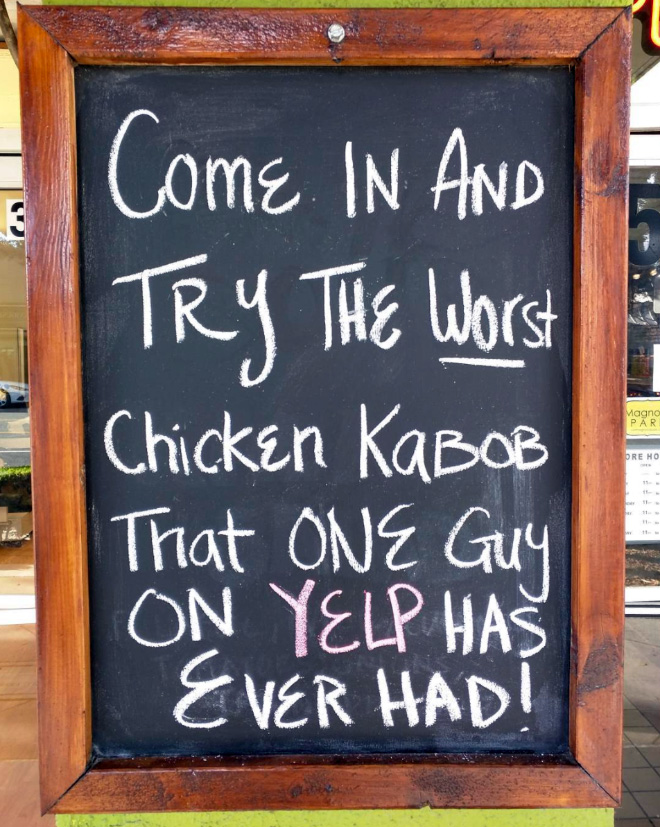 Come IN AND
TRy THE Worst
Chicken KaBOB
That ONE Guy
ON YELP HAS
EVER HAD!
3
5
Magno
PAR
ORE HO
OPEN